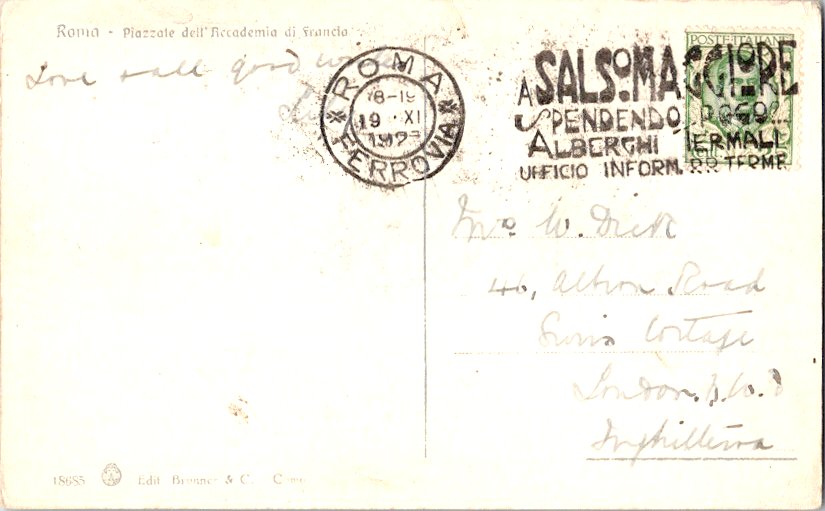 Roma - Piazzale dell'Accademia di Francia
Love & all good wishes
ROMA
18-19
19 XI
FERROVIA
A SALSOMAGGIORE
SPENDENDO
ALBERGHI TERMALI
UFFICIO INFORM. RR TERME
POSTE ITALIANE
Mrs W. Dick
46, Albion Road
Swiss Cottage
London. N.W. 3
Inghilterra
18685 Edit. Brunner & C. Como